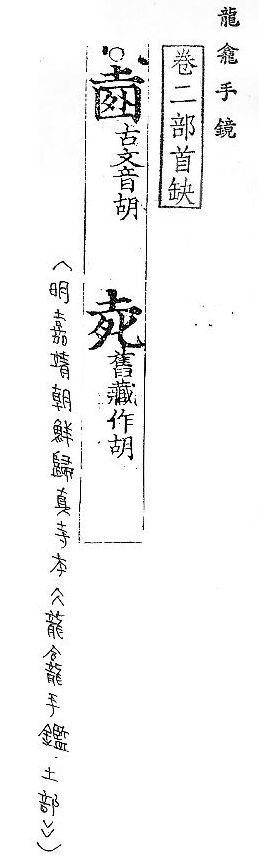 龍龕手鏡
卷二部首缺
古文音胡
舊藏作胡
（明嘉靖朝鮮歸真寺本《龍龕手鑑·土部》）